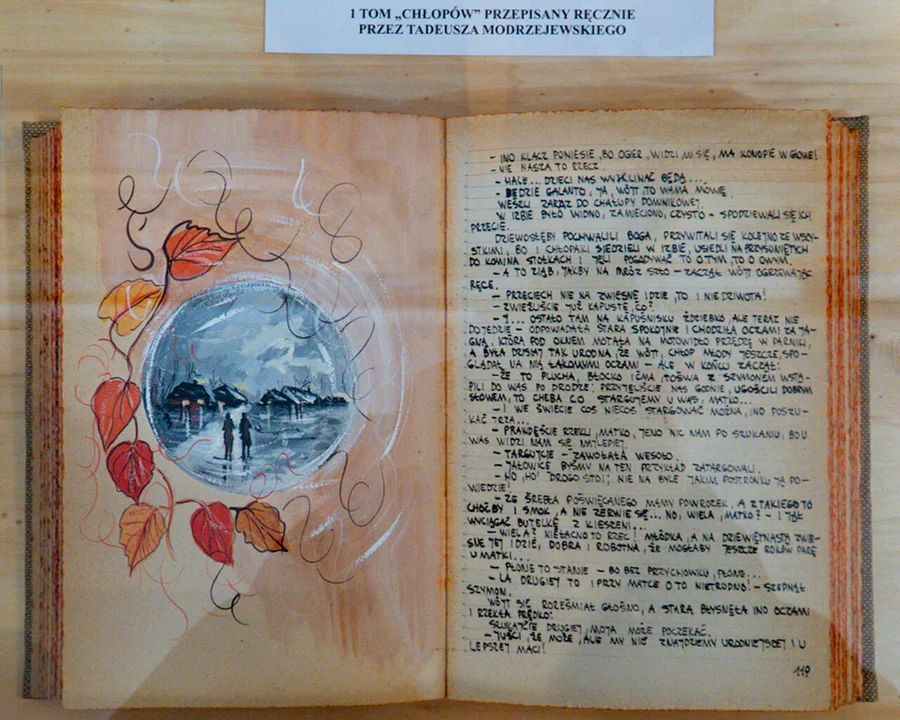 1 TOM „CHŁOPÓW” PRZEPISANY RĘCZNIE
PRZEZ TADEUSZA MODRZEJEWSKIEGO
- INO KLACZ PONIESIE, BO OGIER, WIDZI MI SIĘ, MA KONOPIE W GŁOWIE!
- NIE NASZA TO RZECZ.
- HALE... DZIECI NAS WYKLINAĆ BĘDĄ...
- BĘDZIE GALANTO, JA, WÓJT, TO WAMA MÓWIĘ.
WESZLI ZARAZ DO CHAŁUPY DOMINIKOWEJ.
W IZBIE BYŁO WIDNO, ZAMIECIONO, CZYSTO - SPODZIEWALI SIĘ ICH
PRZECIE.
DZIEWOSŁĘBY POCHWALILI BOGA, PRZYWITALI SIĘ KOLEJNO ZE WSZY-
STKIMI, BO I CHŁOPAKI SIEDZIELI W IZBIE, USIEDLI NA PRZYSUNIĘTYCH
DO KOMINA STOŁKACH I JĘLI POGADYWAĆ TO O TYM, TO O OWYM.
- A TO ZIĄB, JAKBY NA MRÓZ SZŁO - ZACZĄŁ WÓJT OGRZEWAJĄC
RĘCE.
- PRZECIECH NIE NA ZWIESNĘ IDZIE, TO I NIE DZIWOTA!
- ZWIEŹLIŚCIE JUŻ KAPUSTĘ, CO?
- I... OSTAŁO TAM NA KAPUŚNISKU ŹDZIEBKO, ALE TERAZ NIE
DOJEDZIE - ODPOWIADAŁA STARA SPOKOJNIE I CHODZIŁA OCZAMI ZA JA-
GNĄ, KTÓRA POD OKNEM MOTAŁA NA MOTOWIDŁO PRZĘDZĘ W PAŚMIKI,
A BYŁA DZISIAJ TAK URODNA, ŻE WÓJT, CHŁOP MŁODY JESZCZE, SPO-
GLĄDAŁ NA NIĄ ŁAKOMYMI OCZAMI - ALE W KOŃCU ZACZĄŁ:
- ŻE TO PLUCHA, BŁOCKO I ĆMA, TOŚWA Z SZYMONEM WSTĄ-
PILI DO WAS PO DRODZE! PRZYJĘLIŚCIE NAS GODNIE, UGOŚCILI DOBRYM
SŁOWEM, TO CHEBA CO STARGUJEMY U WAS, MATKO...
- I WE ŚWIECIE COŚ NIECOŚ STARGOWAĆ MOŻNA, INO POSZU-
KAĆ TRZA...
- PRAWDĘŚCIE RZEKLI, MATKO, JENO NIC NAM PO SZUKANIU, BO U
WAS WIDZI NAM SIĘ NAJLEPIEJ.
- TARGUJCIE - ZAWOŁAŁA WESOŁO.
- JAŁOWICĘ BYŚMY NA TEN PRZYKŁAD ZATARGOWALI.
- HO, HO! DROGO STOI; NIE NA BYLE JAKIM POSTRONKU JĄ PO-
WIEDZIE!
- ZE ŚREBŁA POŚWIĘCANEGO MAMY POWRÓZEK, A Z TAKIEGO TO
CHOĆBY I SMOK, A NIE ZERWIE SIĘ... NO, WIELA, MATKO? - I JĄŁ
WYCIĄGAĆ BUTELKĘ Z KIESZENI...
- WIELA? NIEŁACNO TO RZEC! MŁÓDKA, A NA DZIEWIĘTNASTĄ ZWIE-
SNĘ JEJ IDZIE, DOBRA I ROBOTNA, ŻE MOGŁABY JESZCZE ROKÓW PARĘ
U MATKI...
- PŁONE TO STANIE - BO BEZ PRZYCHOWKU, PŁONE...
- LA DRUGIEJ TO I PRZY MATCE O TO NIETRUDNO! - SZEPNĄŁ
SZYMON.
WÓJT SIĘ ROZEŚMIAŁ GŁOŚNO, A STARA BŁYSNĘŁA INO OCZAMI
I RZEKŁA PRĘDKO:
SZUKAJCIE DRUGIEJ, MOJA MOŻE POCZEKAĆ.
- JUŚCI, ŻE MOŻE, ALE MY NIE ZNAJDZIEMY URODNIEJSZEJ I U
LEPSZEJ MACI!
119